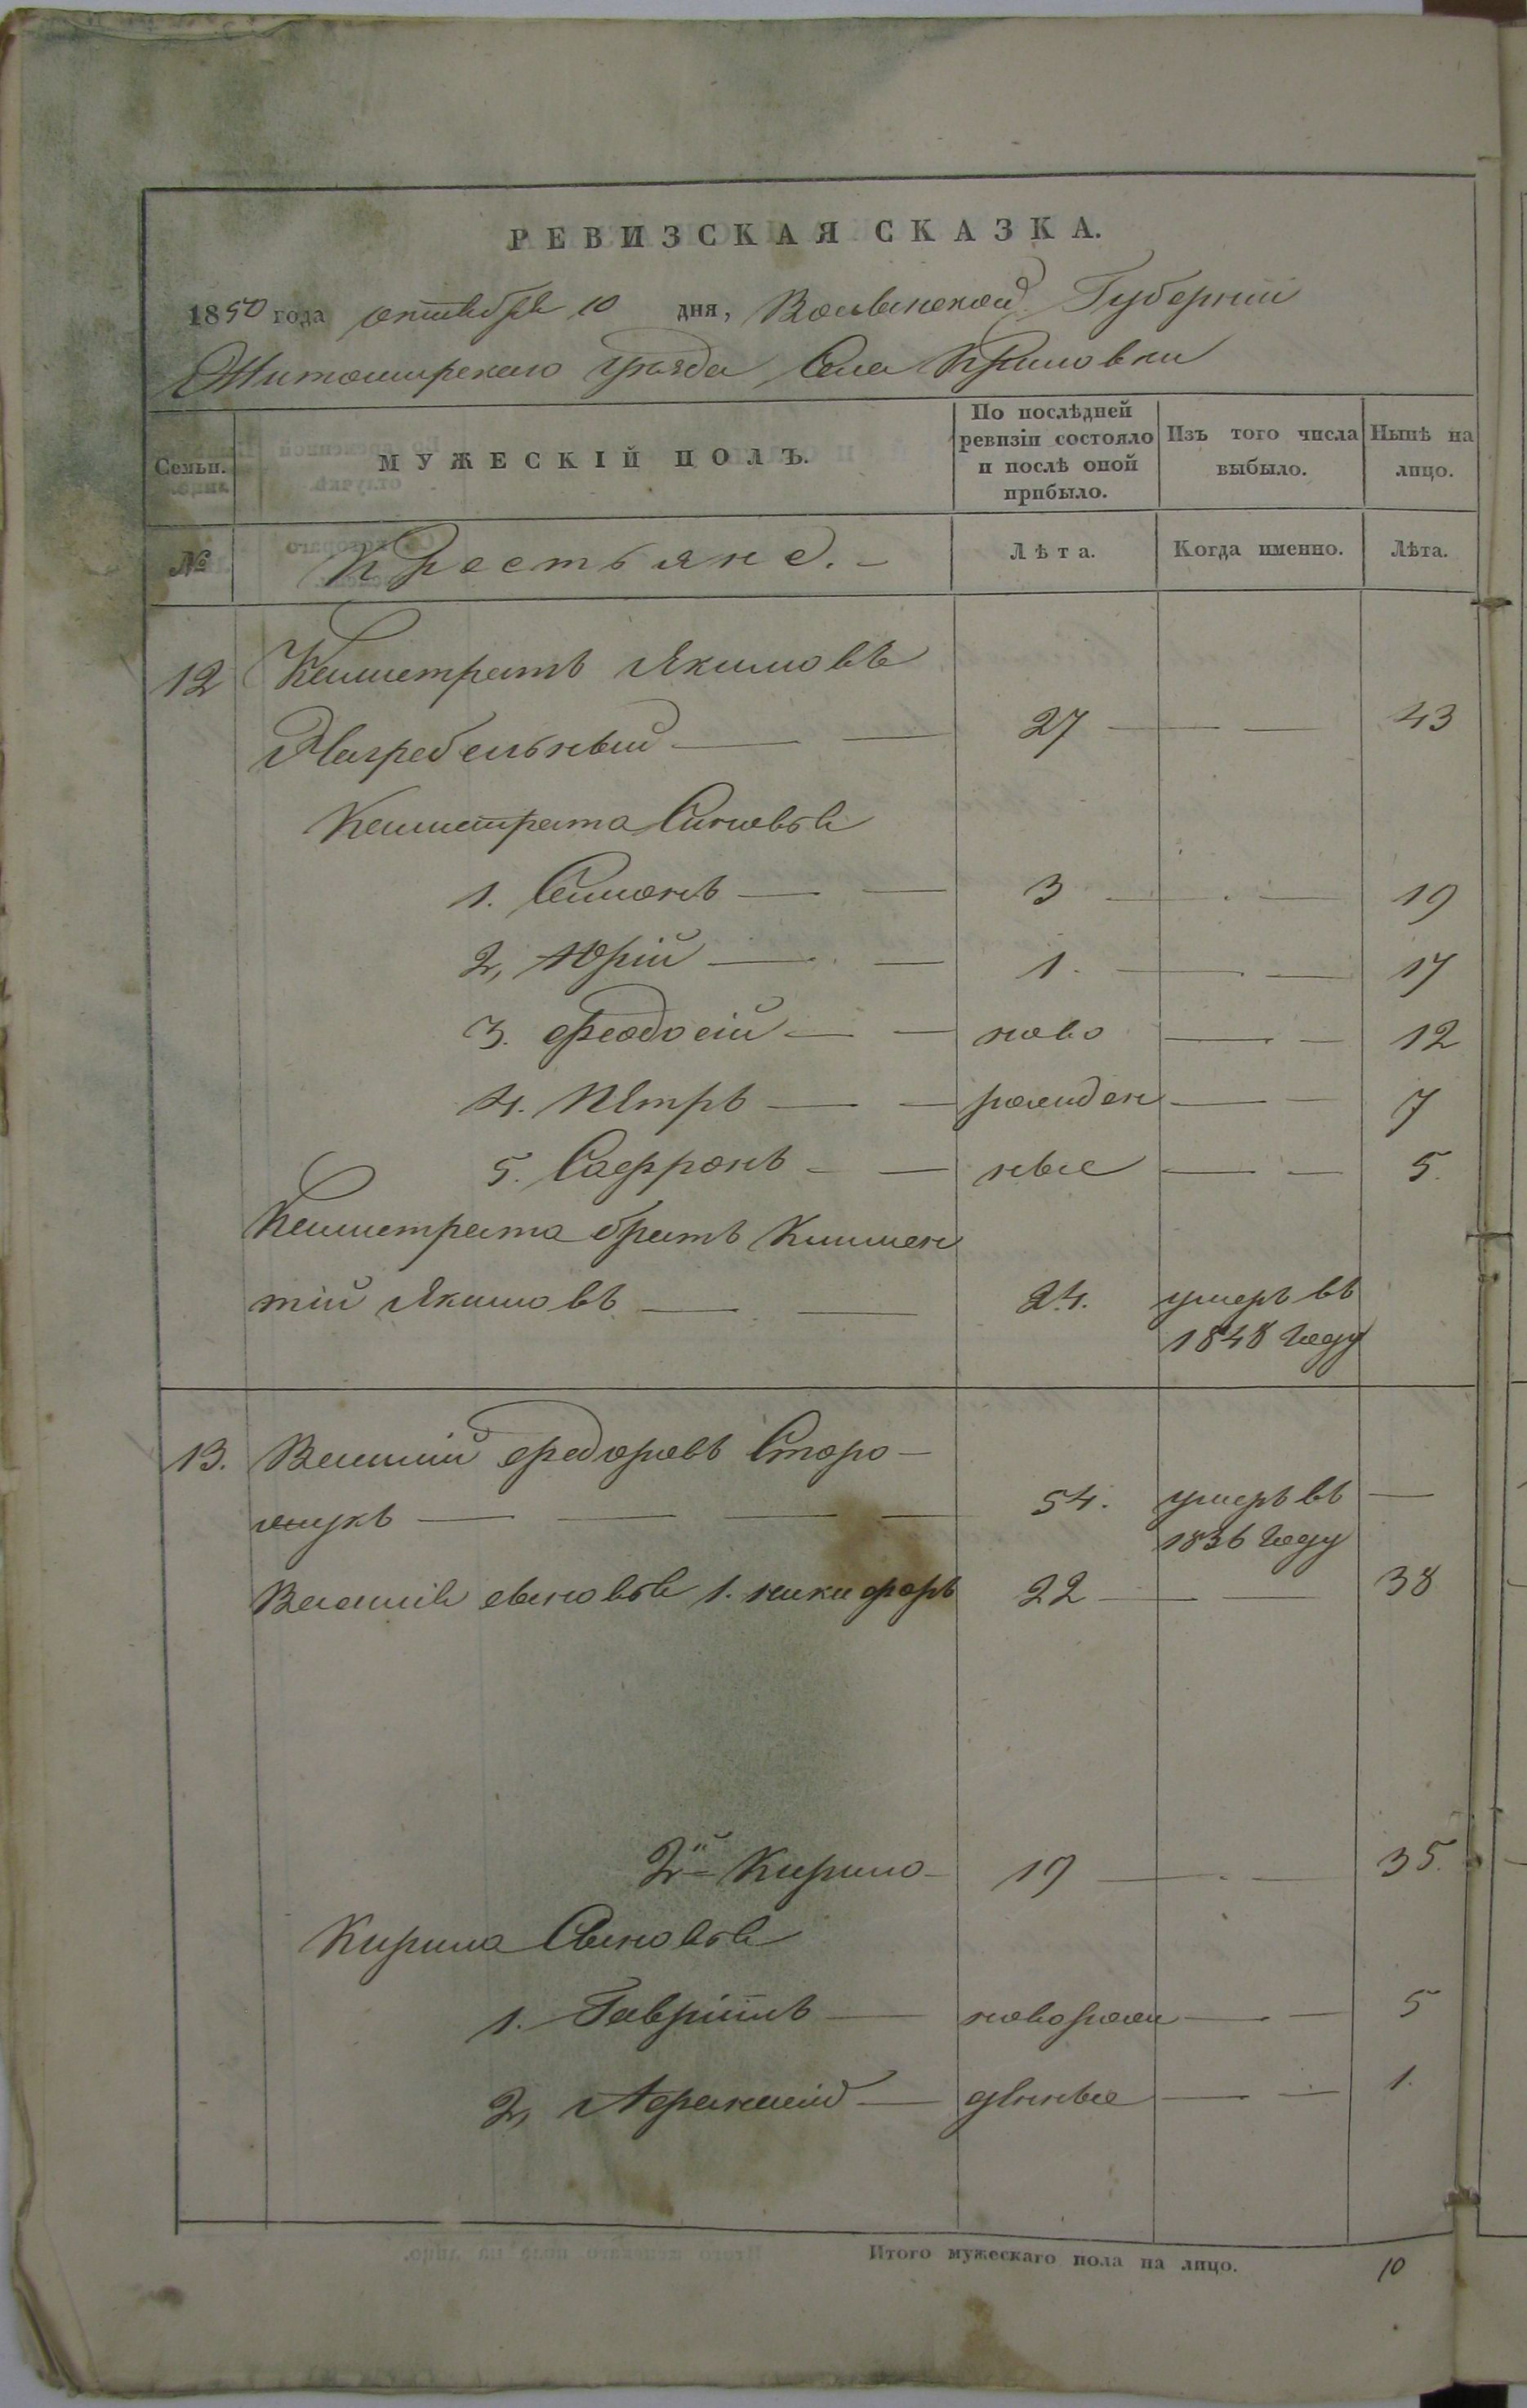 РЕВИЗСКАЯ СКАЗКА.
1850 года октября 10 дня, Волынской Губерніи
Житомирскаго уѣзда Села Криловки
Семьи.
МУЖЕСКІЙ ПОЛЪ.
По послѣдней ревизіи состояло и послѣ оной прибыло.
Изъ того числа выбыло.
Нынѣ на лицо.
№
Крестьяне.
Лѣта.
Когда именно.
Лѣта.
12 Калистратъ Якимовъ
Нагребельный — — 27 — — 43
Калистрата Синовья
1. Симонъ — — 3 — — 19
2, Юрій — — 1. — — 17
3. Феодосій — — ново — — 12
4. Петръ — — рожден — — 7
5. Софронъ — — ные — — 5.
Калистрата братъ Климен
тій Якимовъ — — 24. умеръ въ
1848 году
13. Василій Федоровъ Сторо-
жукъ — — — — 54. умеръ въ —
1836 году
Василія сыновья 1. Никифоръ 22 — — 38
2й Кирило 19 — — 35.
Кирила Сыновья
1. Гавріилъ — новорож — — 5
2, Афанасій — дѣнные — — 1.
Итого мужескаго пола на лицо. 10